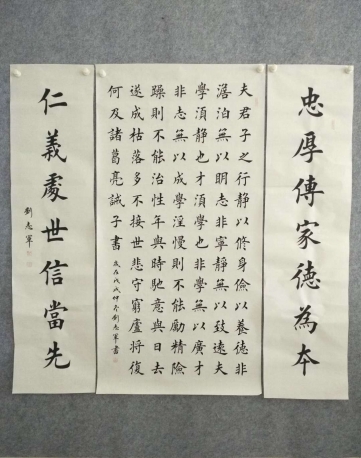 忠厚傳家德為本
夫君子之行靜以修身儉以養德非
澹泊無以明志非寧靜無以致遠夫
學須靜也才須學也非學無以廣才
非志無以成學淫慢則不能勵精險
躁則不能治性年與時馳意與日去
遂成枯落多不接世悲守窮廬將復
何及諸葛亮誡子書 歲在戊戌仲冬劉志軍書
仁義處世信當先
劉志軍